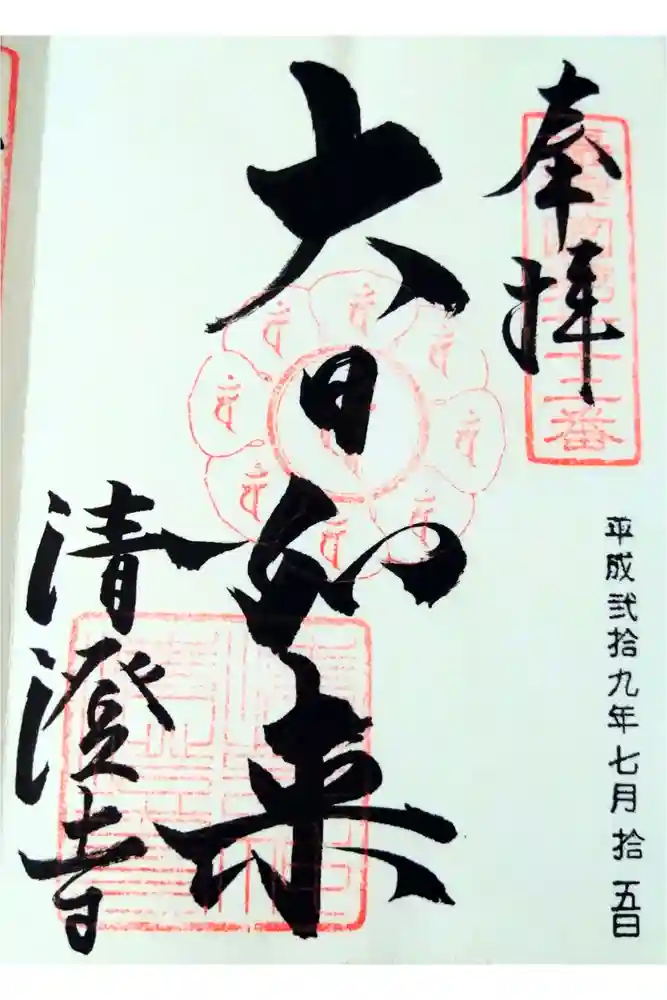 奉拝
三番
平成弐拾九年七月拾五日
大日如来
清澄寺